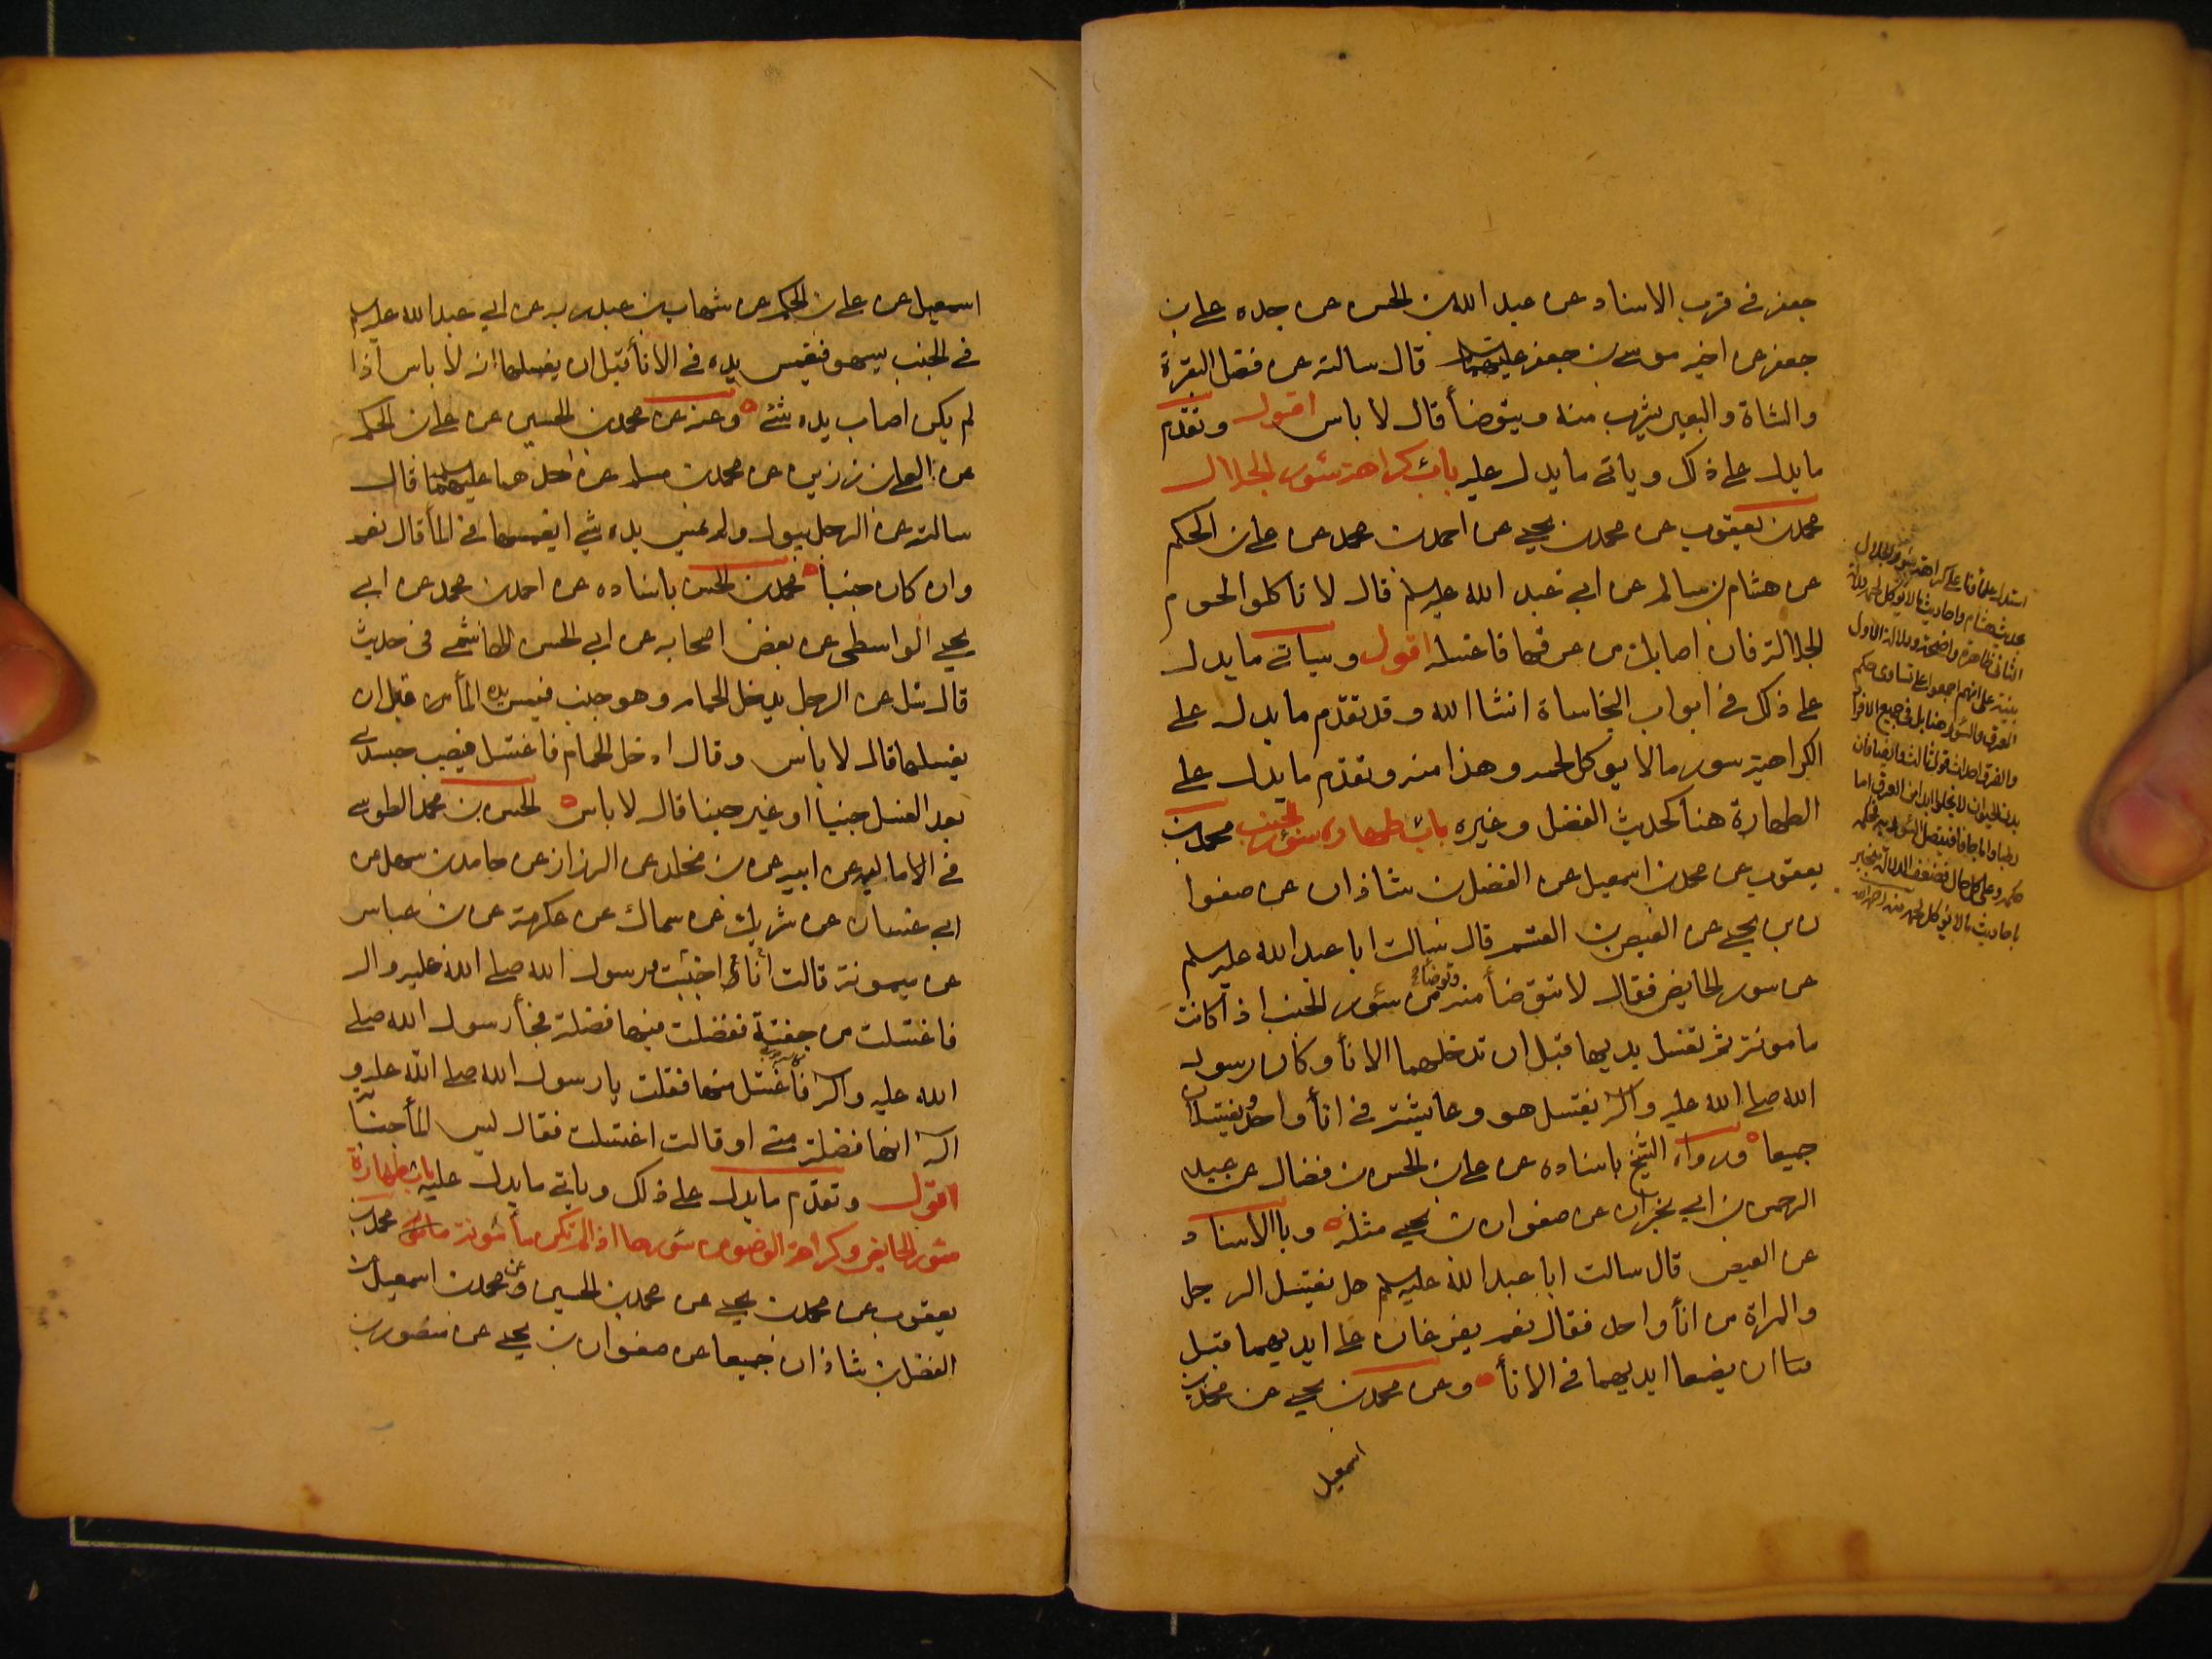 جعفر في قرب الاسناد عن عبد الله بن الحسن عن جده علي بن
جعفر عن اخيه موسى بن جعفر عليهما قال سالته عن فضل البقرة
والشاة والبعير يشرب منه ويتوضأ قال لا باس اقول وتقدم
ما يدل على ذلك وياتي ما يدل عليه باب كراهة سئور الجلال
محمد بن يعقوب عن محمد بن يحيى عن احمد بن محمد عن علي بن الحكم
عن هشام بن سالم عن ابي عبد الله عليه السلم قال لا تاكلوا لحوم
الجلالة فان اصابك من عرقها فاغسله اقول وسياتي ما يدل
على ذلك في ابواب النجاساة انشا الله وقد تقدم ما يدل على
الكراهية سور ما لا يوكل لحمه وهذا منه وتقدم ما يدل على
الطهارة هنا كحديث الفضل وغيره باب طهاره سئور الجنب محمد بن
يعقوب عن محمد بن اسمعيل عن الفضل بن شاذان عن صفوا
ن بن يحيى عن العيص بن القسم قال سالت ابا عبد الله عليه السلم
عن سور الحايض فقال لا تتوضأ منه وتوضأ من سئور الجنب اذا كانت
مامونة ثم تغسل يديها قبل ان تدخلهما الانأ وكان رسول
الله صلى الله عليه وآله يغتسل هو وعايشة في انأ واحد ويغتسلان
جميعا ورواه الشيخ باسناده عن علي بن الحسن بن فضال عن عبد
الرحمن بن ابي نجران عن صفوان بن يحيى مثله وبالاسناد
عن العيص قال سالت ابا عبد الله عليه السلم هل يغتسل الرجل
والمراة من انأ واحد فقال نعم يفرغان على ايديهما قبل
ان يضعا ايديهما في الانأ وعن محمد بن يحيى عن محمد بن
اسمعيل
استدل علمأنا على كراهة سئور الجلال
بحديث هشام واحاديث ما لا يوكل لحمه ودلالة
الثاني ظاهرة واضحة ودلالة الاول
على انهم اجمعوا على تساوي حكم
العرق والسئور هنا بل في جميع الافراد
والفرق احداث قول ثالث وايضا فان
بدن الحيوان لا يخلو ابدا من العرق اما
رطبا واما جافا فيتصل السئور به فحكمه
حكمه وعلى كل حال فضعف الدلالة منجبر
باحاديث ما لا يوكل لحمه منه رحمه الله
اسمعيل عن علي بن الحكم عن شهاب بن عبد ربه عن ابي عبد الله عليه السلم
في الجنب يسهو فيغمس يده في الانأ قبل ان يغسلها انه لا باس اذا
لم يكن اصاب يده شئ وعنه عن محمد بن الحسين عن علي بن الحكم
عن العلا بن رزين عن محمد بن مسلم عن احدهما عليهما السلم قال
سالته عن الرجل يبول ولم يمس يده شي ايغمسها في المأ قال نعم
وان كان جنبا محمد بن الحسن باسناده عن احمد بن محمد عن ابي
يحيى الواسطي عن بعض اصحابه عن ابي الحسن الهاشمي في حديث
قال سئل عن الرجل يدخل الحمام وهو جنب فيمس يده المأ من قبل ان
يغسلها قال لا باس وقال ادخل الحمام فاغتسل فيصيب جسدي
بعد الغسل جنبا او غير جنبا قال لا باس الحسن بن محمد الطوسي
في الامالي عن ابيه عن بن مخلد عن الرزاز عن حامد بن سهل عن
ابي غسان عن شريك عن سماك عن عكرمة عن بن عباس
عن ميمونة قالت اجنبت انا ورسول الله صلى الله عليه وآله
فاغتسلت من جفنة ففضلت منها فضلة فجأ رسول الله صلى
الله عليه وآله فاغتسل منها فقلت يا رسول الله صلى الله عليه و
آله انها فضلة مني او قالت اغتسلت فقال ليس المأ جنبا
اقول وتقدم ما يدل على ذلك وياتي ما يدل عليه باب طهارة
سئور الحايض وكراهة الوضو من سئورها اذا لم تكن مأمونة محمد بن
يعقوب عن محمد بن يحيى عن محمد بن الحسين وعن محمد بن اسمعيل عن
الفضل بن شاذان جميعا عن صفوان بن يحيى عن منصور بن